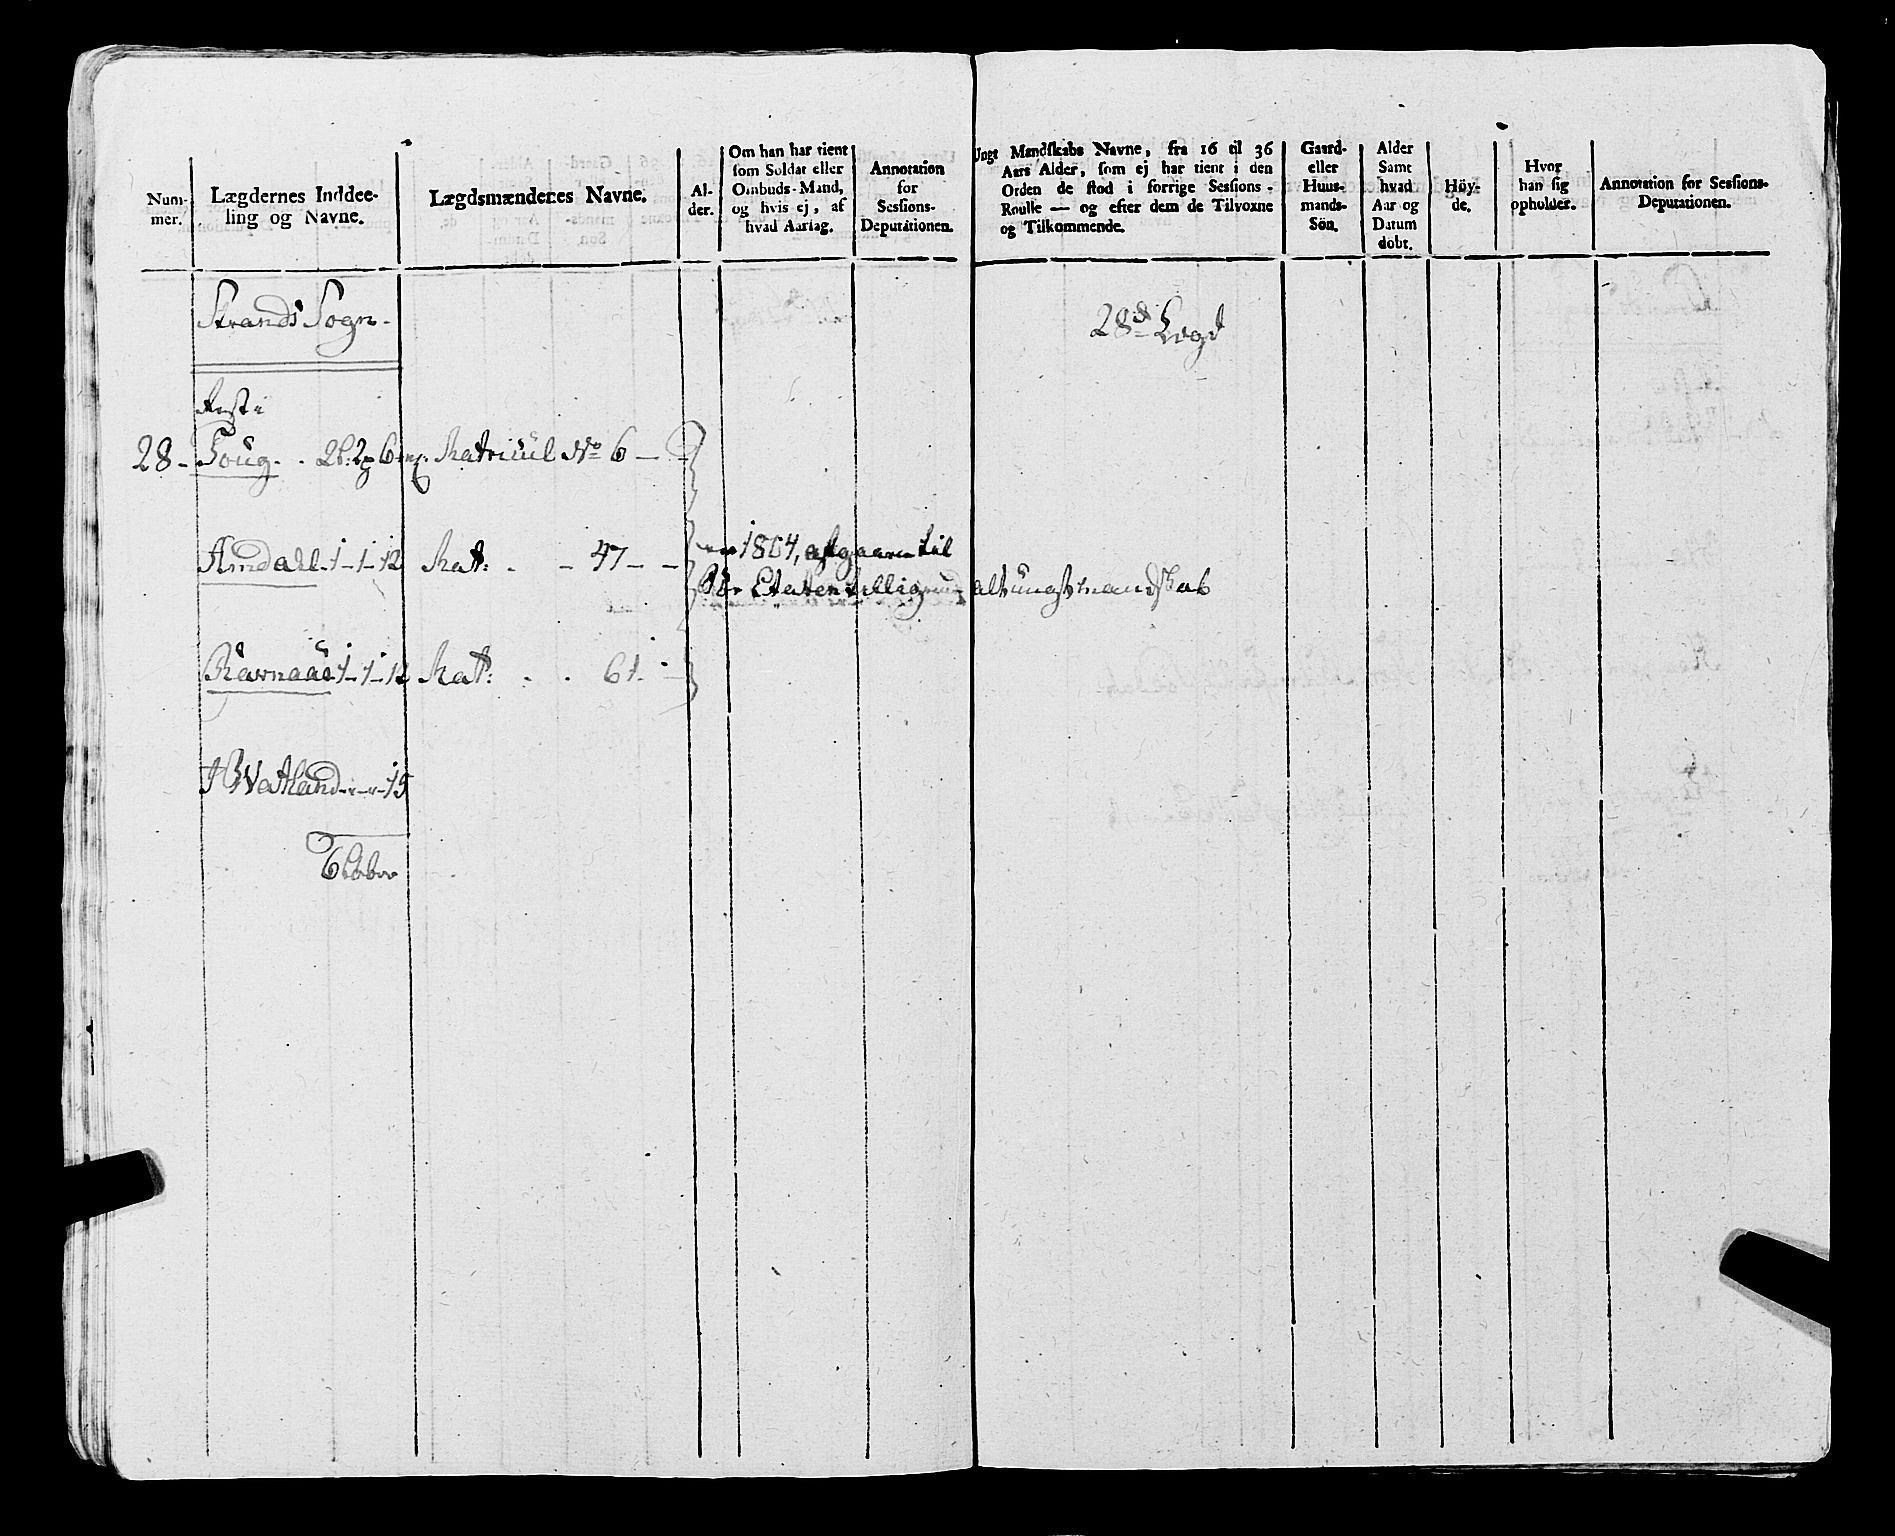 Num-
mer.
Lægdernes Inddee-
ling og Navne.
Lægdsmændenes Navne.
Al-
der.
Om han har tient
som Soldat eller
Ombuds-Mand,
og hvis ej, af
hvad Aarsag.
Annotation
for
Sessions-
Deputationen.
Ungt Mandskabs Navne, fra 16 til 36
Aars Alder, som ej har tient i den
Orden de stod i forrige Sessions-
Roulle — og efter dem de Tilvoxne
og Tilkommende.
Gaard-
eller
Huus-
mands-
Sön.
Alder
Samt
hvad
Aar og
Datum
döbt.
Höy-
de.
Hvor
han sig
opholder.
Annotation for Sessions-
Deputationen.
Strands Sogn.
28d Legd
28 - Toug. . 2 6 Matricul No 6 - -
1-1-12 Mat: . - 47 - -
1804, afgaaen til
Söe Etaten tillig altungtmandskab
Ravnaae 1-1-12 Mat: . . 61. -
Vatland - - 15